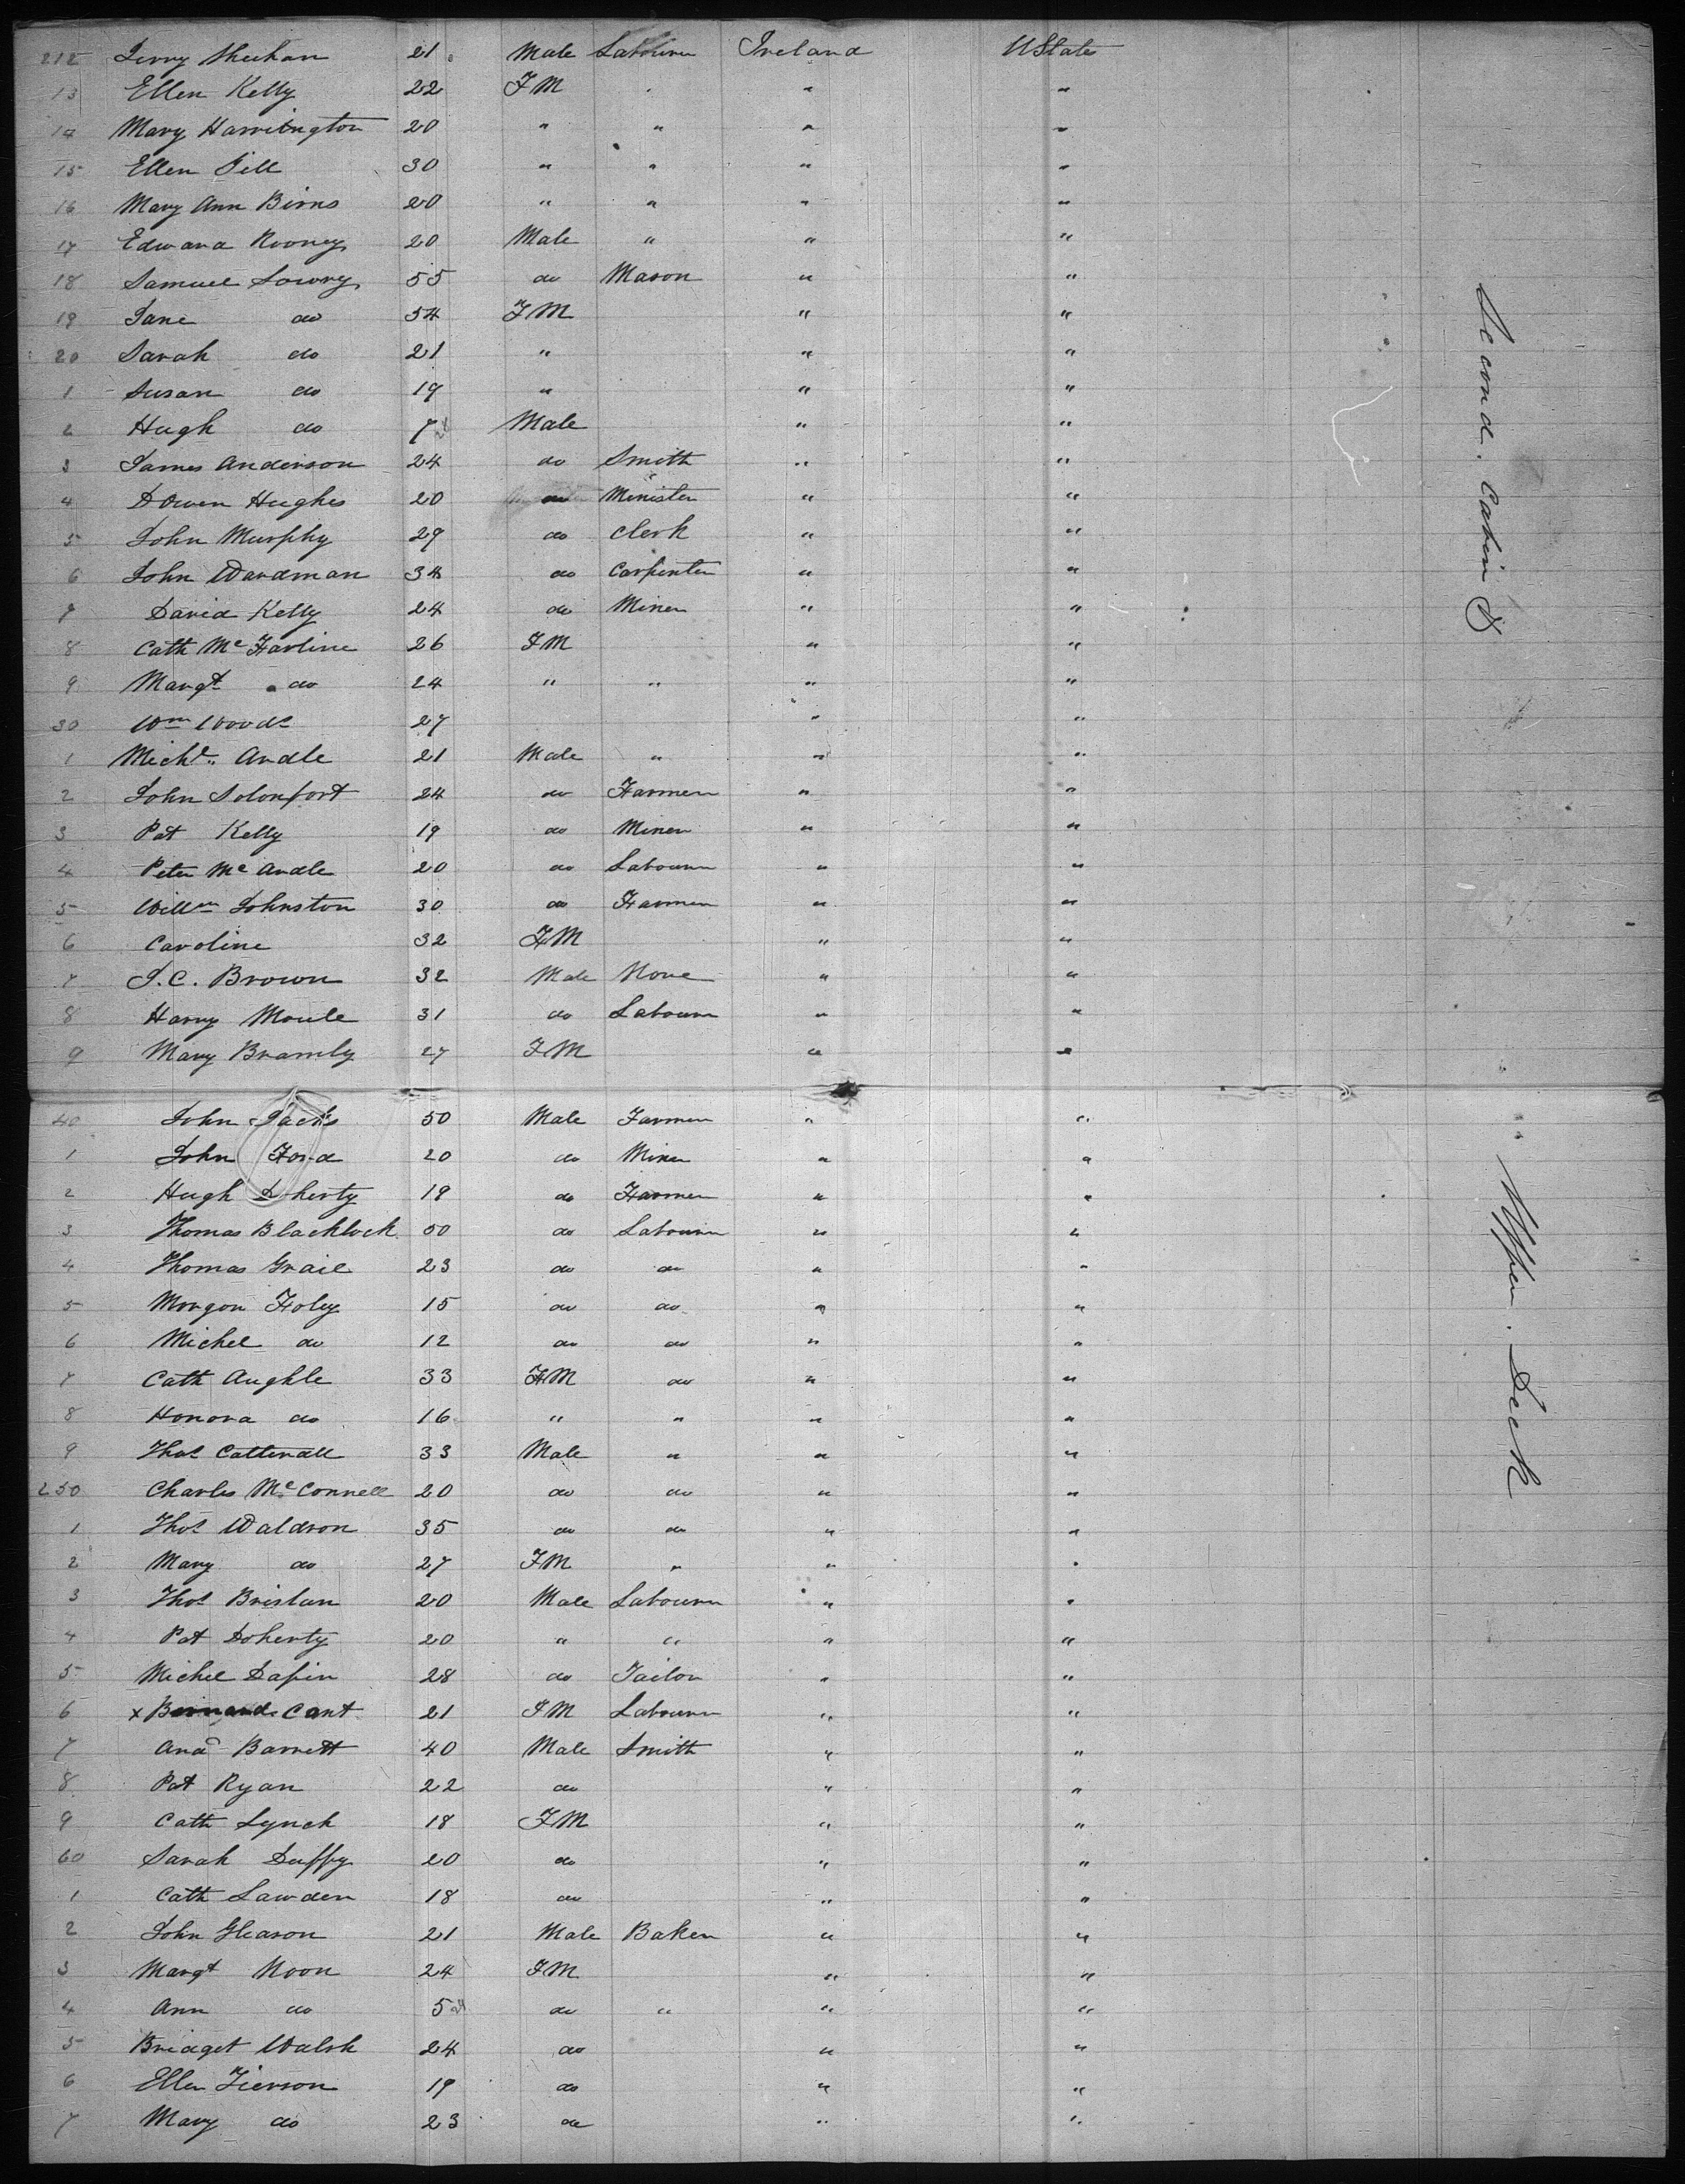 212 Jerry Sheehan 21 Male Labourer Ireland UStates
13 Ellen Kelly 22 FM " " "
14 Mary Harrington 20 " " " "
15 Ellen Sill 30 " " " "
16 Mary Ann Birns 20 " " " "
17 Edward Rooney 20 Male " " "
18 Samuel Lowry 55 do Mason " "
19 Jane do 54 FM " "
20 Sarah do 21 " " "
1 Susan do 19 " " "
2 Hugh do 7 Male " "
3 James Anderson 24 do Smith " "
4 D Owen Hughes 20 do Minister " "
5 John Murphy 29 do Clerk " "
6 John Wardman 34 do Carpenter " "
7 David Kelly 24 do Miner " "
8 Cath Mc Farline 26 FM " "
9 Margt do 24 " " " "
30 Wm Woods 27 " "
1 Michl Ardle 21 Male " " "
2 John Solonfort 24 do Farmer " "
3 Pat Kelly 19 do Miner " "
4 Peter Mc Ardle 20 do Labourer " "
5 Willm Johnston 30 do Farmer " "
6 Caroline 32 FM " "
7 J. C. Brown 32 Male None " "
8 Harry Moule 31 do Labourer " "
9 Mary Bramly 27 FM " "
40 John Jacks 50 Male Farmer " "
1 John Ford 20 do Miner " "
2 Hugh Doherty 19 do Farmer " "
3 Thomas Blacklock 50 do Labourer " "
4 Thomas Grail 23 do do " "
5 Morgon Foley 15 do do " "
6 Michel do 12 do do " "
7 Cath Aughle 33 FM do " "
8 Honora do 16 " " " "
9 Thos Cattenall 33 Male " " "
250 Charles Mc Connell 20 do do " "
1 Thos Waldron 35 do do " "
2 Mary do 27 FM " " "
3 Thos Brislan 20 Male Labourer " "
4 Pat Doherty 20 " " " "
5 Michel Dafin 28 do Tailor " "
6 x Bernard Cant 21 FM Labourer " "
7 And Barrett 40 Male Smith " "
8 Pat Ryan 22 do " "
9 Cath Lynch 18 FM " "
60 Sarah Duffy 20 do " "
1 Cath Lawden 18 do " "
2 John Gleason 21 Male Baker " "
3 Margt Noon 24 FM " "
4 Ann do 5 do " " "
5 Bridget Walsh 24 do " "
6 Ellen Tierson 19 do " "
7 Mary do 23 do " "
Second. Cabin &
Upper. Deck